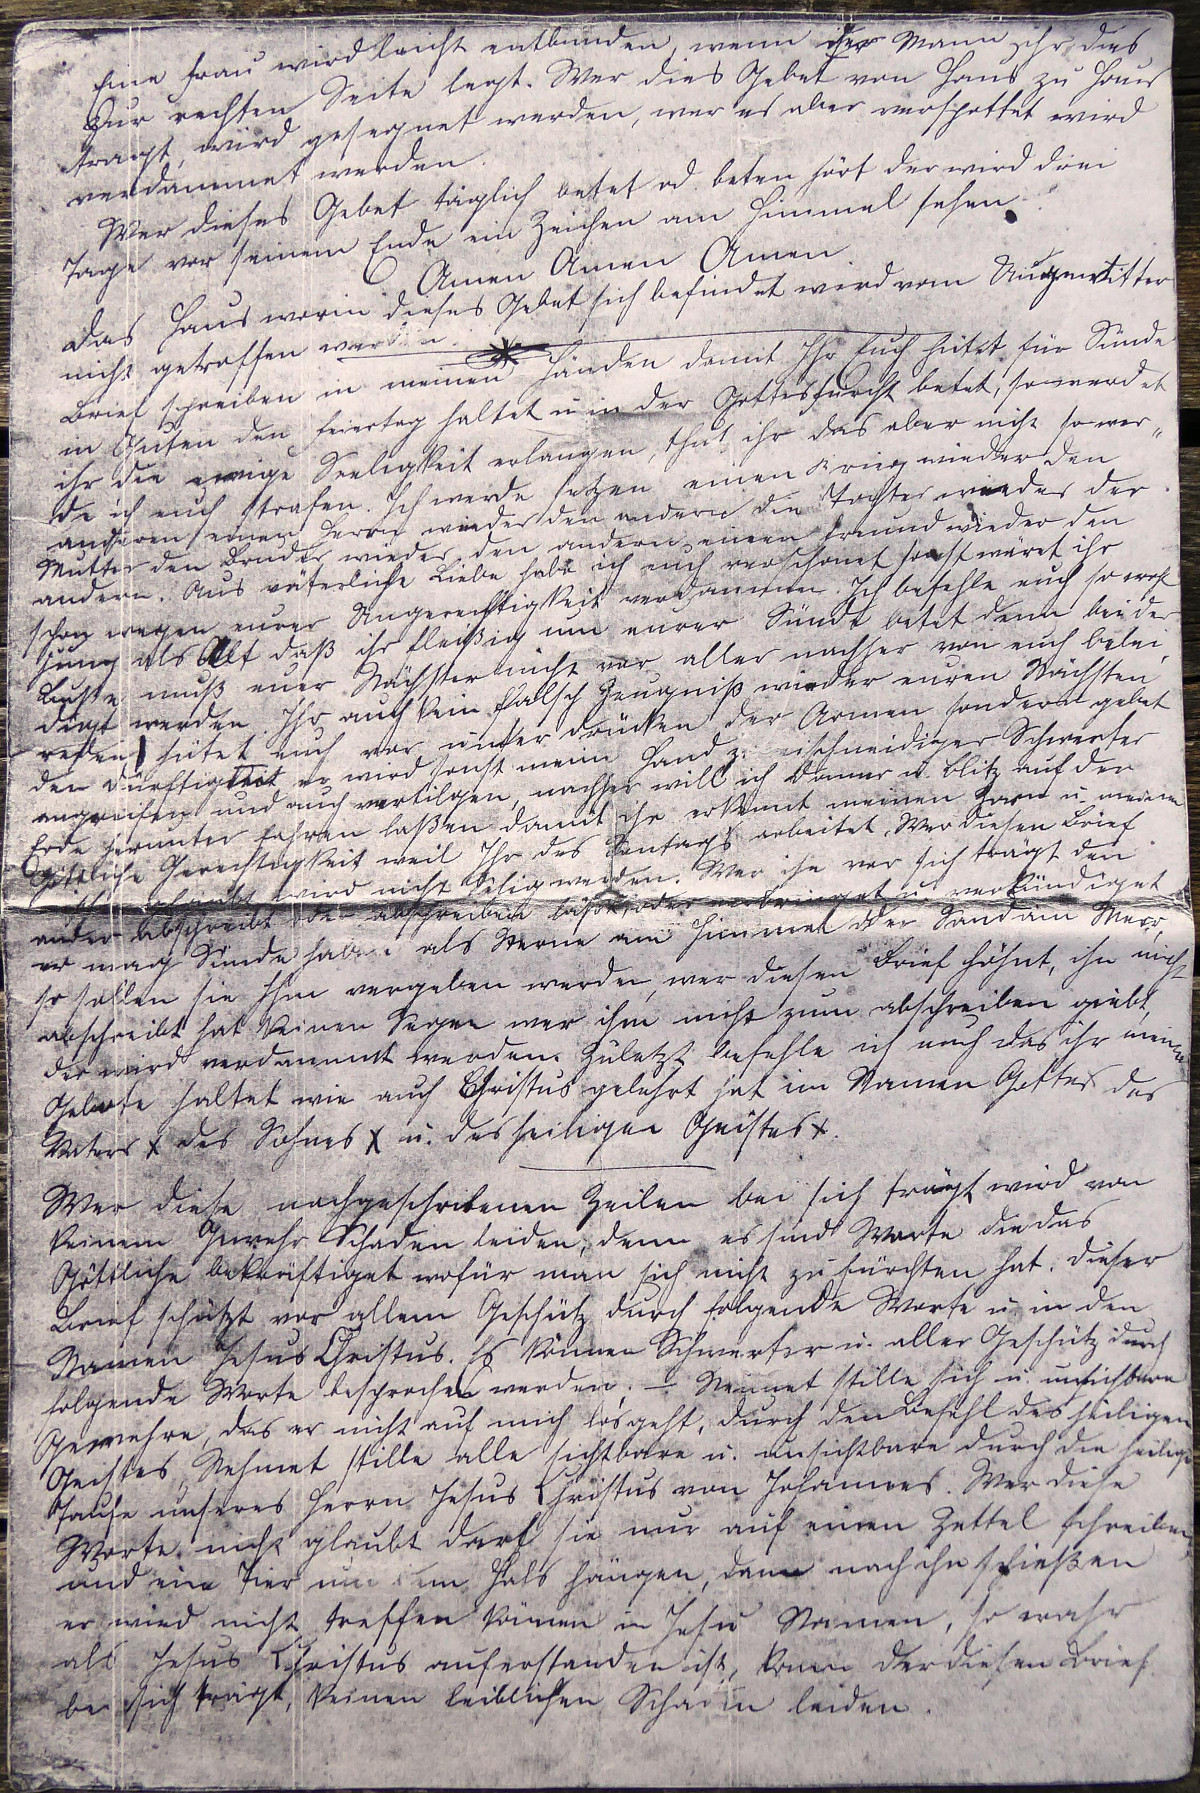 Eine Frau wird leicht entbunden, wenn der Mann ihr dies
zur rechten Seite legt. Wer dies Gebet von Haus zu Haus
tragt, wird gesegnet werden, wer es aber verspottet wird
verdammet werden.
Wer dieses Gebet täglich betet od. beten hört der wird drei
Tage vor seinem Ende ein Zeichen am Himmel sehen.
Amen Amen Amen
Das Haus worin dieses Gebet sich befindet wird vom Ungewitter
nicht getroffen werden.
Brief schreiben in meinen Händen damit Ihr Euch hütet für Sünde
in Guten den Feiertag haltet u in der Gottesfurcht betet, so werdet
ihr die ewige Seeligkeit erlangen, thut ihr das aber nicht so wer-
de ich euch strafen. Ich werde setzen einen Krieg wieder den
anderen einen Herrn wieder den andern die Tochter wieder der
Mutter den Bruder wieder den andern einen Freund wieder den
andern. Aus väterliche Liebe habe ich euch verschonet sonst wäret ihr
schon wegen eurer Ungerechtigkeit verdammen. Ich befehle euch so wohl
jung als Alt daß ihr fleißig um eurer Sünde betet denn bei der
Buße muß euer Nächster nicht vor aller nachher von euch belei-
digt werden. Ihr auch kein falsch Zeugniß wieder euren Nächsten
reden hütet euch vor unter drücken der Armen sondern gebet
den Dürftigkeit er wird sonst meine Hand schneidiger Schwerter
angreifen und auch vertilgen, nachher will ich Donner u. Blitz auf der
Erde herunter fahren laßen damit ihr erkennt meinen Zorn u. meine
Göttliche Gerechtigkeit weil Ihr des Sontags arbeitet. Wer diesen Brief
nicht glaubt wird nicht selig werden. Wer ihn vor sich trägt den
ander abschreibt oder abschreiben läßt, oder verbringet u. verkündiget
er mag Sünde haben als Sterne am Himmel oder Sand im Meer,
so sollen sie Ihm vergeben werden, wer diesen Brief höhnt, ihn nicht
abschreibt hat keinen Segen wer ihn nicht zum abschreiben giebt,
der wird verdammt werden. Zuletzt befehle ich euch das ihr meine
Gebote haltet wie auch Christus gelehrt hat im Namen Gottes des
Vaters x des Sohnes x u. des heiligen Geistes x.
Wer diese nachgeschriebenen Zeilen bei sich trägt wird von
keinem Gewehr Schaden leiden, denn es sind Worte die das
Göttliche bekräftiget wofür man sich nicht zu fürchten hat. Dieser
Brief schützt vor allem Geschütz durch folgende Worte u. in den
Namen Jesus Christus. Es können Schwerter u. aller Geschütz durch
folgende Worte besprochen werden. – Nemmet stille sich u. unsichbare
Gewehre, das er nicht auf mich losgeht, durch den Befehl des heiligen
Geistes, Nehmet stille alle sichtbare u. unsichtbare durch die heilige
Taufe unseres Herrn Jesus Christus von Johannes. Wer diese
Worte nicht glaubt darf sie nur auf einen Zettel schreiben
und ein Tier um dem Hals hängen, dann nach ihn schießen
er wird nicht treffen können in Jesu Namen, so wahr
als Jesus Christus auferstanden ist, kann der diesen Brief
bei sich trägt, keinen leiblichen Schaden leiden.